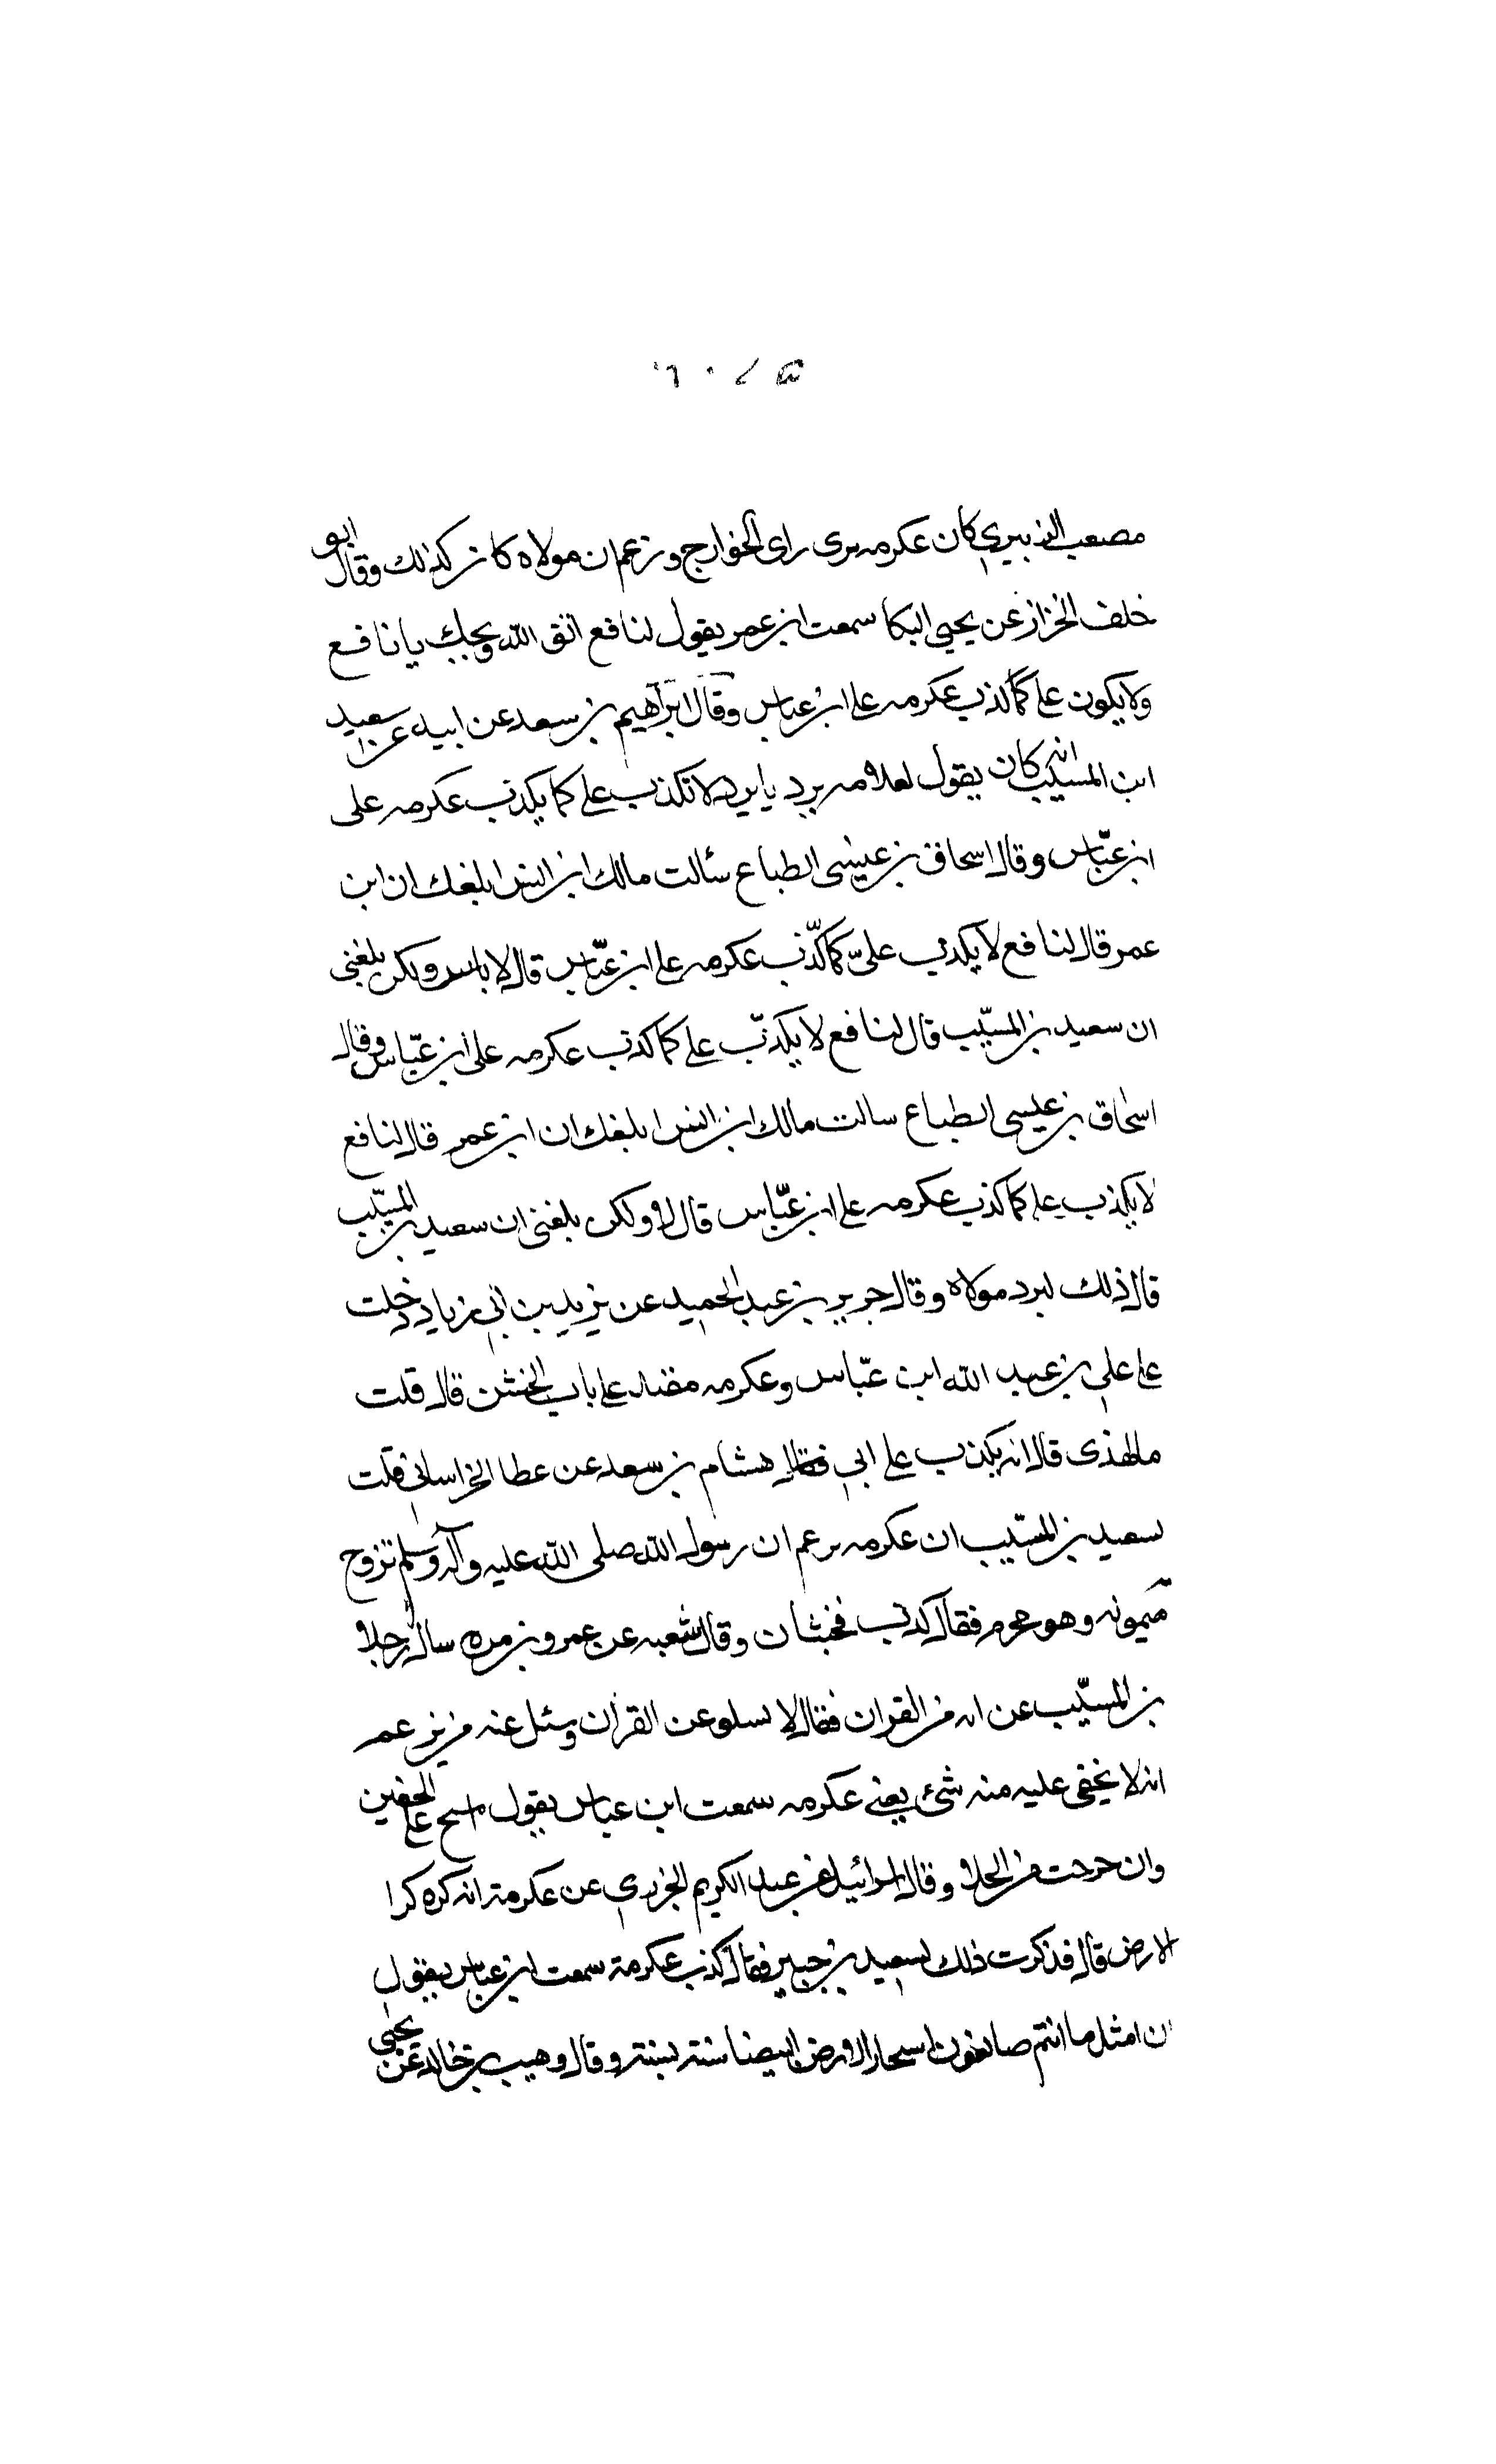 مصعب الزبيري كان عكرمه يرى راى الخوارج وزعم ان مولاه كان كذلك وقال ابو
خلف الخزاز عن يحيى البكا سمعت ابن عمر يقول لنافع اتق الله ويحك يا نافع
ولا يكون على كما كذب عكرمه على ابن عباس وقال ابراهيم بن سعد عن ابيه عن سعيد
ابن المسيب انه كان يقول لغلامه برد يا برد لا تكذب على كما يكذب عكرمه على
ابن عبّاس وقال اسحاق بن عيسى الطباع سألت مالك ابن انس ابلغك ان ابن
عمر قال لنافع لا يكذب علىّ كما كذّب عكرمه على ابن عبّاس قال لا باس ولكن بلغنى
ان سعيد بن المسيّب قال لنافع لا يكذّب على كما كذب عكرمه على ابن عبّاس وقال
اسحاق بن عيسى الطباع سالت مالك ابن انس ابلغك ان ابن عمر قال لنافع
لا يكذب على كما كذب عكرمه على ابن عبّاس قال لا ولكن بلغنى ان سعيد بن المسيّب
قال ذلك لبرد مولاه وقال جرير بن عبد الحميد عن يزيد بن ابي زياد دخلت
على علي بن عبد الله ابن عبّاس وعكرمه مقيد على باب الخشن قال قلت
ما لهذى قال انه يكذب على ابي فقال هشام بن سعد عن عطا الخراساني قلت
لسعيد بن المسيّب ان عكرمه يزعم ان رسول الله صلى الله عليه وآله وسلم تزوج
ميمونه وهو محرم فقال كذب مخبثان وقال شعبه عن عمرو بن مره سال رجلا
بن المسيّب عن ايه من القران فقال لا تسلو عن القرأن وسئل عنه من يزعم
انه لا يخفى عليه منه شئ يعنى عكرمه سمعت ابن عباس يقول امسح على الخفين
وان خرجت من الخلا وقال اسرائيل عن عبد الكريم الجزري عن عكرمة انه كره كرا
الارض قال فذكرت ذلك لسعيد بن جبير فقال كذب عكرمة سمعت ابن عباس يقول
ان امثل ما انتم صانعون استيجار الارض البيضا سنة بسنة وقال وهيب بن خالد عن يحيى